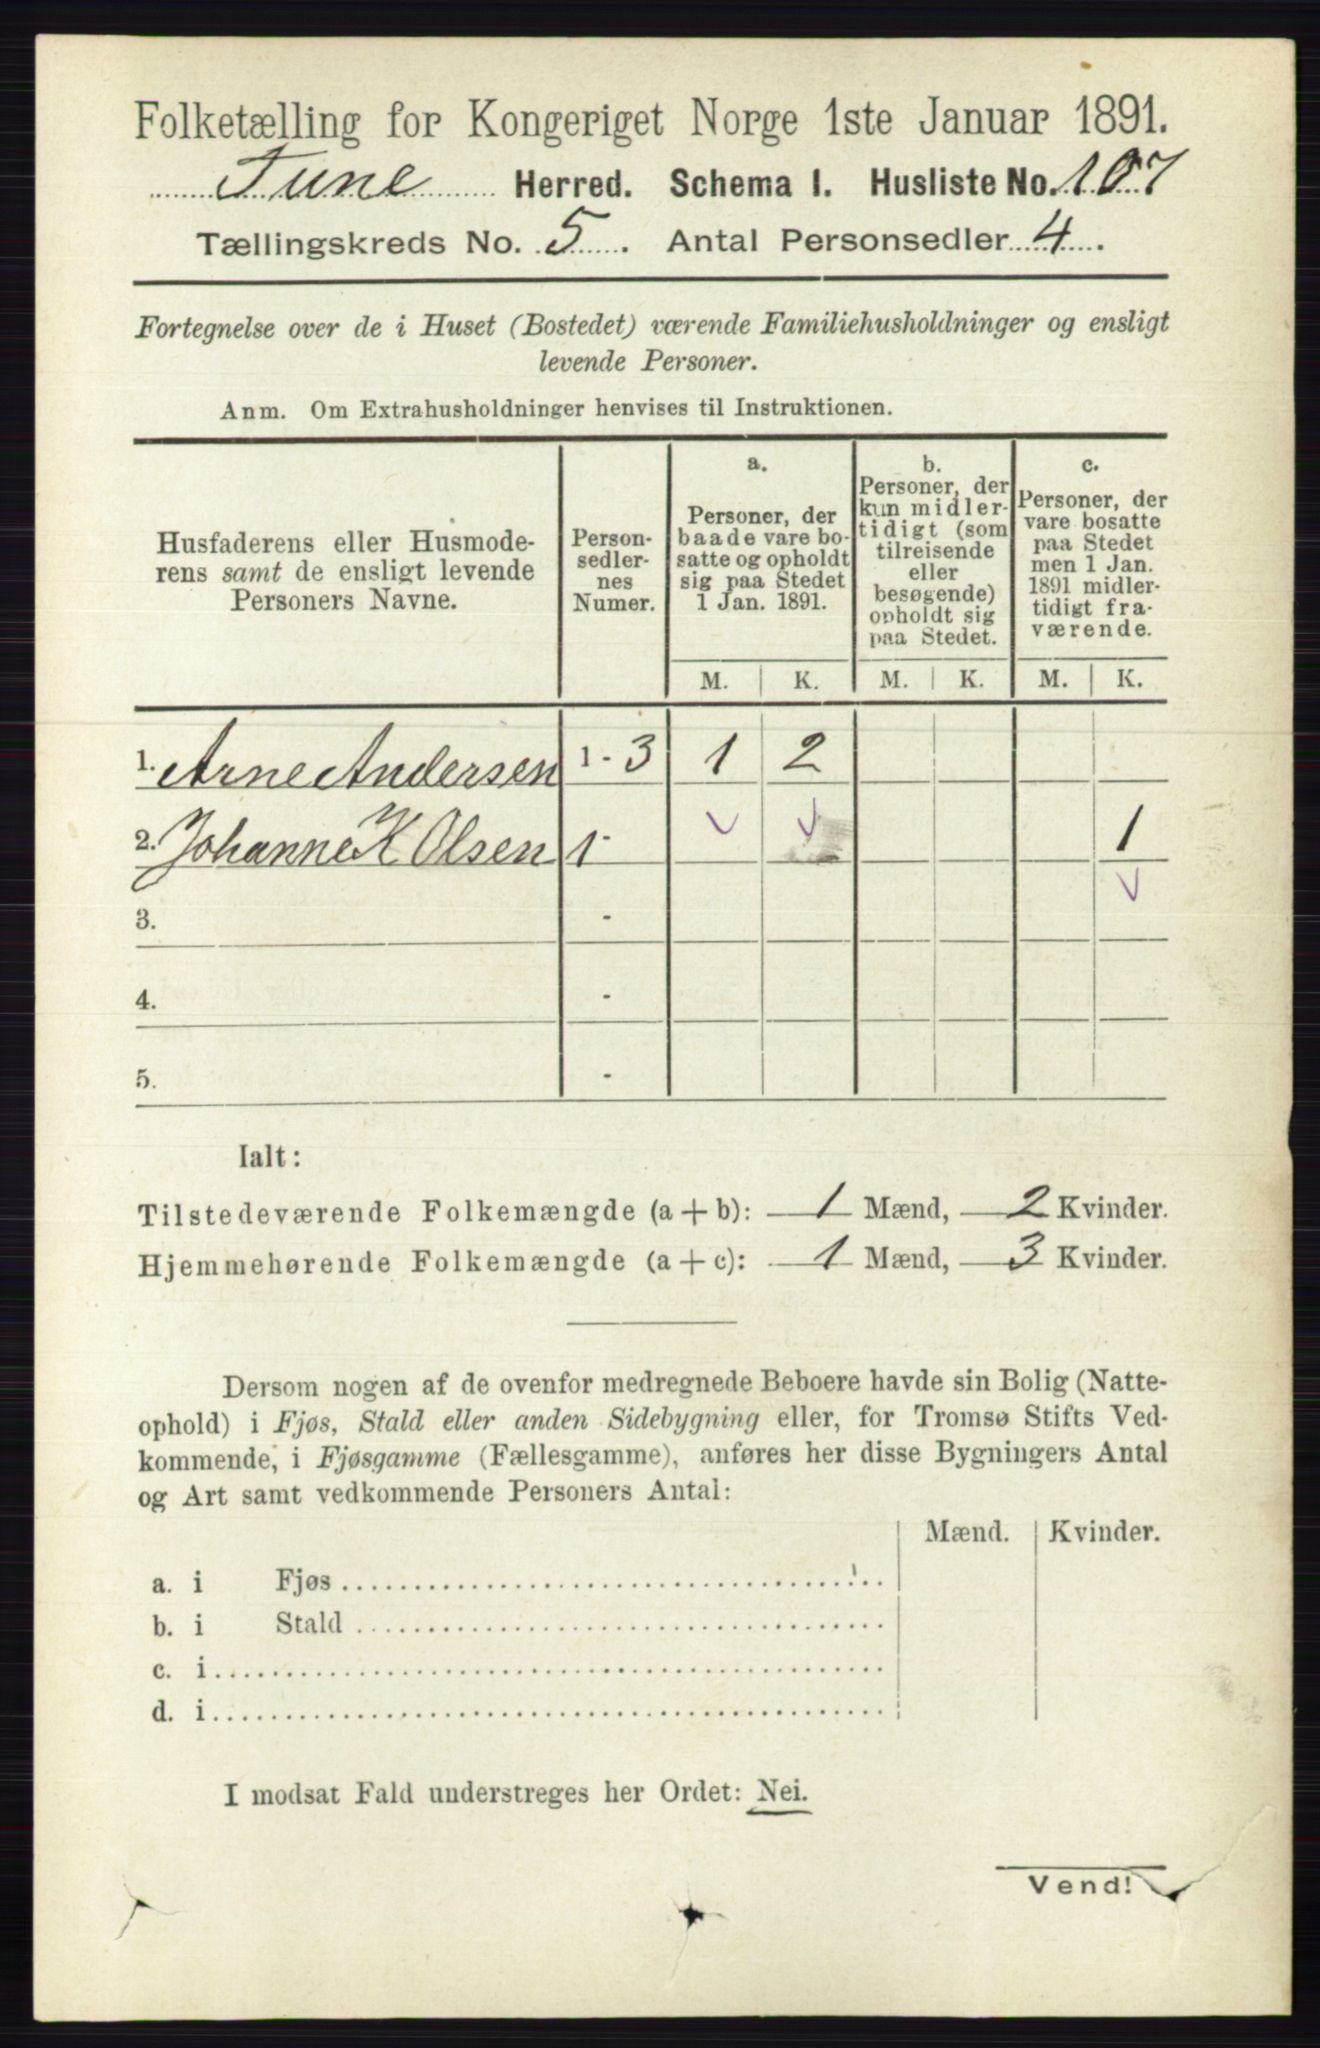 Folketælling for Kongeriget Norge 1ste Januar 1891.
Tune Herred. Schema I. Husliste No. 107
Tællingskreds No. 5. Antal Personsedler 4.
Fortegnelse over de i Huset (Bostedet) værende Familiehusholdninger og ensligt
levende Personer.
Anm. Om Extrahusholdninger henvises til Instruktionen.
Husfaderens eller Husmode-
rens samt de ensligt levende
Personers Navne.
Person-
sedler-
nes
Numer.
a.
Personer, der
baade vare bo-
satte og opholdt
sig paa Stedet
1 Jan. 1891.
b.
Personer, der
kun midler-
tidigt (som
tilreisende
eller
besøgende)
opholdt sig
paa Stedet.
c.
Personer, der
vare bosatte
paa Stedet
men 1 Jan.
1891 midler-
tidigt fra-
værende.
M. K. M. K. M. K.
1. Arne Andersen 1 - 3 1 2
2. Johanne K Olsen 1 - 1
3. -
4. -
5. -
Ialt:
Tilstedeværende Folkemængde (a + b): 1 Mænd, 2 Kvinder.
Hjemmehørende Folkemængde (a + c): 1 Mænd, 3 Kvinder.
Dersom nogen af de ovenfor medregnede Beboere havde sin Bolig (Natte-
ophold) i Fjøs, Stald eller anden Sidebygning eller, for Tromsø Stifts Ved-
kommende, i Fjøsgamme (Fællesgamme), anføres her disse Bygningers Antal
og Art samt vedkommende Personers Antal:
Mænd. Kvinder.
a. i Fjøs
b. i Stald
c. i
d. i
I modsat Fald understreges her Ordet: Nei.
Vend!